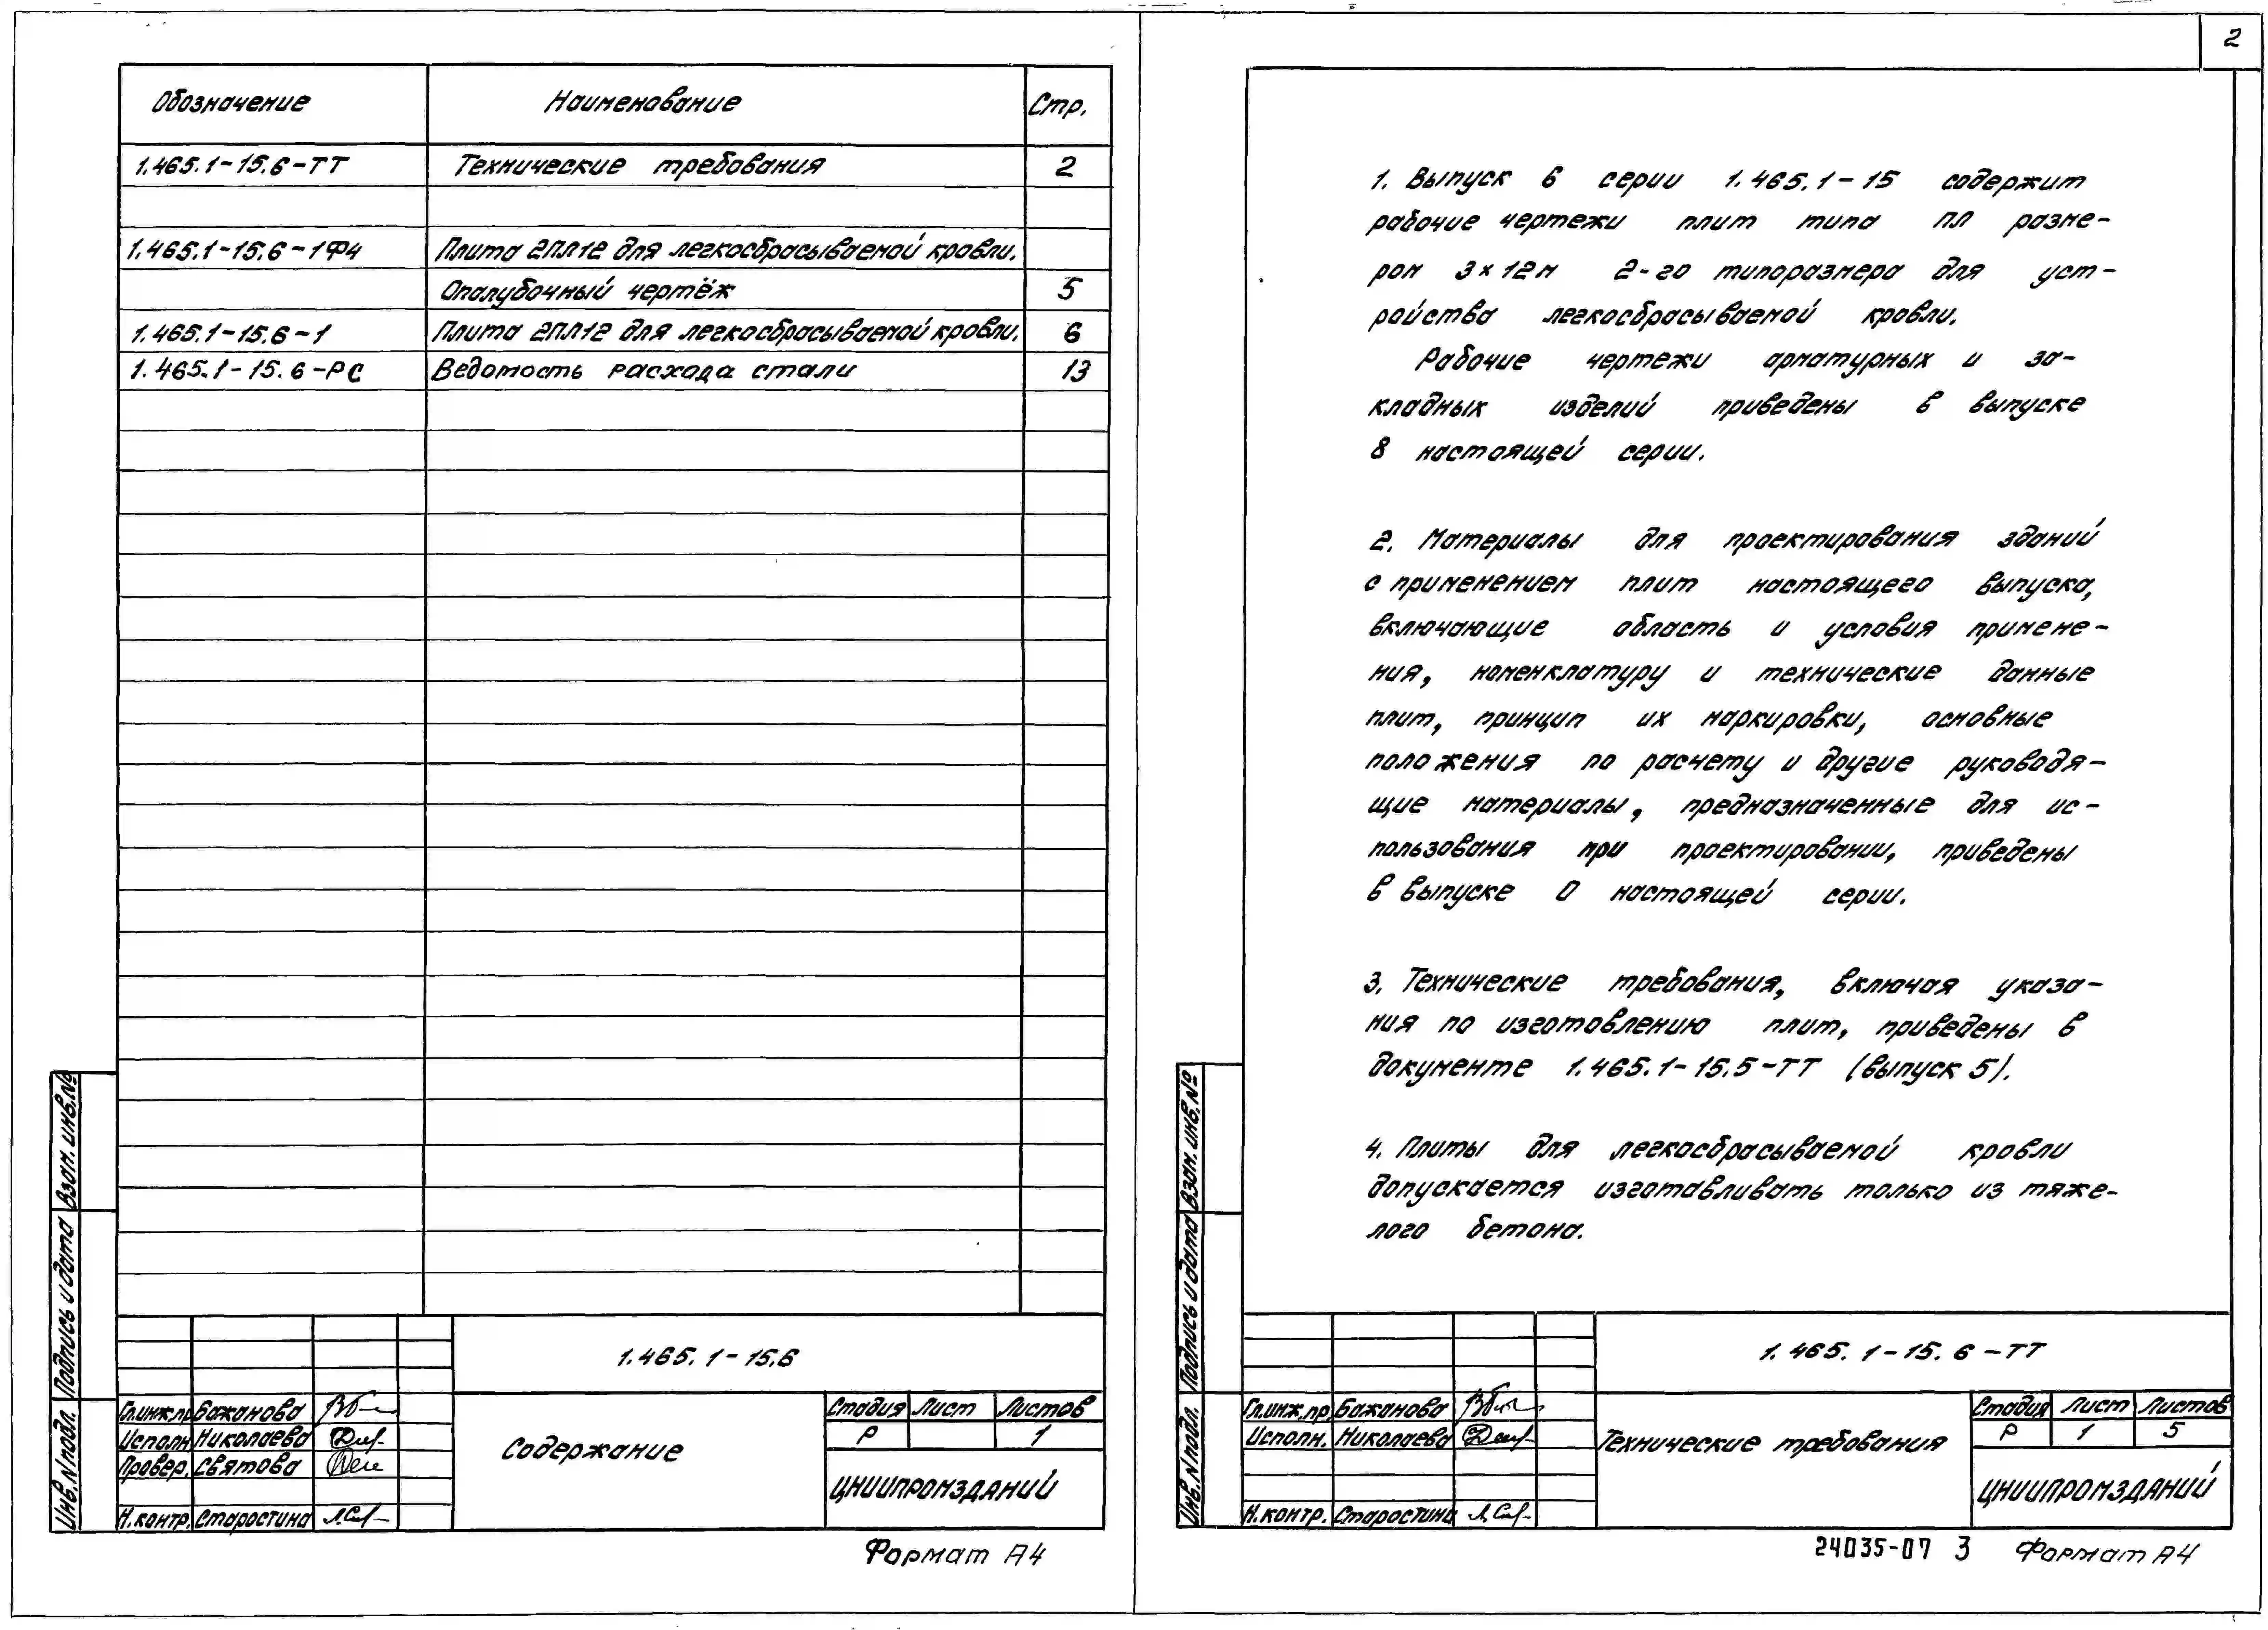 Обозначение Наименование Стр.
1.465.1-15.6-ТТ Технические требования 2
1.465.1-15.6-1ФЧ Плита 2ПЛ12 для легкосбрасываемой кровли.
Опалубочный чертёж 5
1.465.1-15.6-1 Плита 2ПЛ12 для легкосбрасываемой кровли. 6
1.465.1-15.6-РС Ведомость расхода стали 13
Взам. инв.№
Подпись и дата
Инв.№ подл.
1.465.1-15.6
Гл.инж.пр Бажанова
Исполн Николаева
Провер. Святова
Н.контр. Старостина
Содержание
Стадия Лист Листов
Р 1
ЦНИИПРОМЗДАНИЙ
Формат А4
2
1. Выпуск 6 серии 1.465.1-15 содержит
рабочие чертежи плит типа ПЛ разме-
ром 3×12м 2-го типоразмера для уст-
ройства легкосбрасываемой кровли.
Рабочие чертежи арматурных и за-
кладных изделий приведены в выпуске
8 настоящей серии.
2. Материалы для проектирования зданий
с применением плит настоящего выпуска,
включающие область и условия примене-
ния, номенклатуру и технические данные
плит, принцип их маркировки, основные
положения по расчету и другие руководя-
щие материалы, предназначенные для ис-
пользования при проектировании, приведены
в выпуске 0 настоящей серии.
3. Технические требования, включая указа-
ния по изготовлению плит, приведены в
документе 1.465.1-15.5-ТТ (выпуск 5).
4. Плиты для легкосбрасываемой кровли
допускается изготавливать только из тяже-
лого бетона.
Взам. инв.№
Подпись и дата
Инв.№ подл.
1.465.1-15.6-ТТ
Гл.инж.пр Бажанова
Исполн. Николаева
Н.контр. Старостина
Технические требования
Стадия Лист Листов
Р 1 5
ЦНИИПРОМЗДАНИЙ
24035-07 3 Формат А4